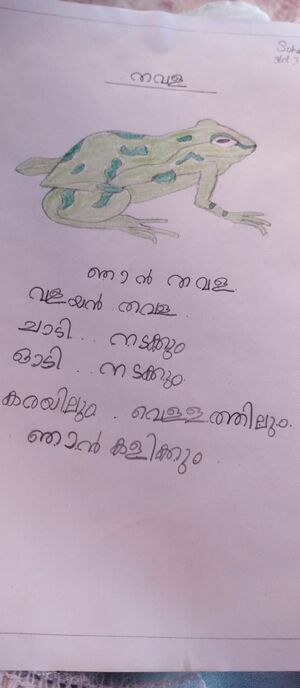 തവള
ഞാൻ തവള
വളയൻ തവള
ചാടി . . . നടക്കും
ഓടി . . . നടക്കും
കരയിലും . വെള്ളത്തിലും.
ഞാൻ കളിക്കും